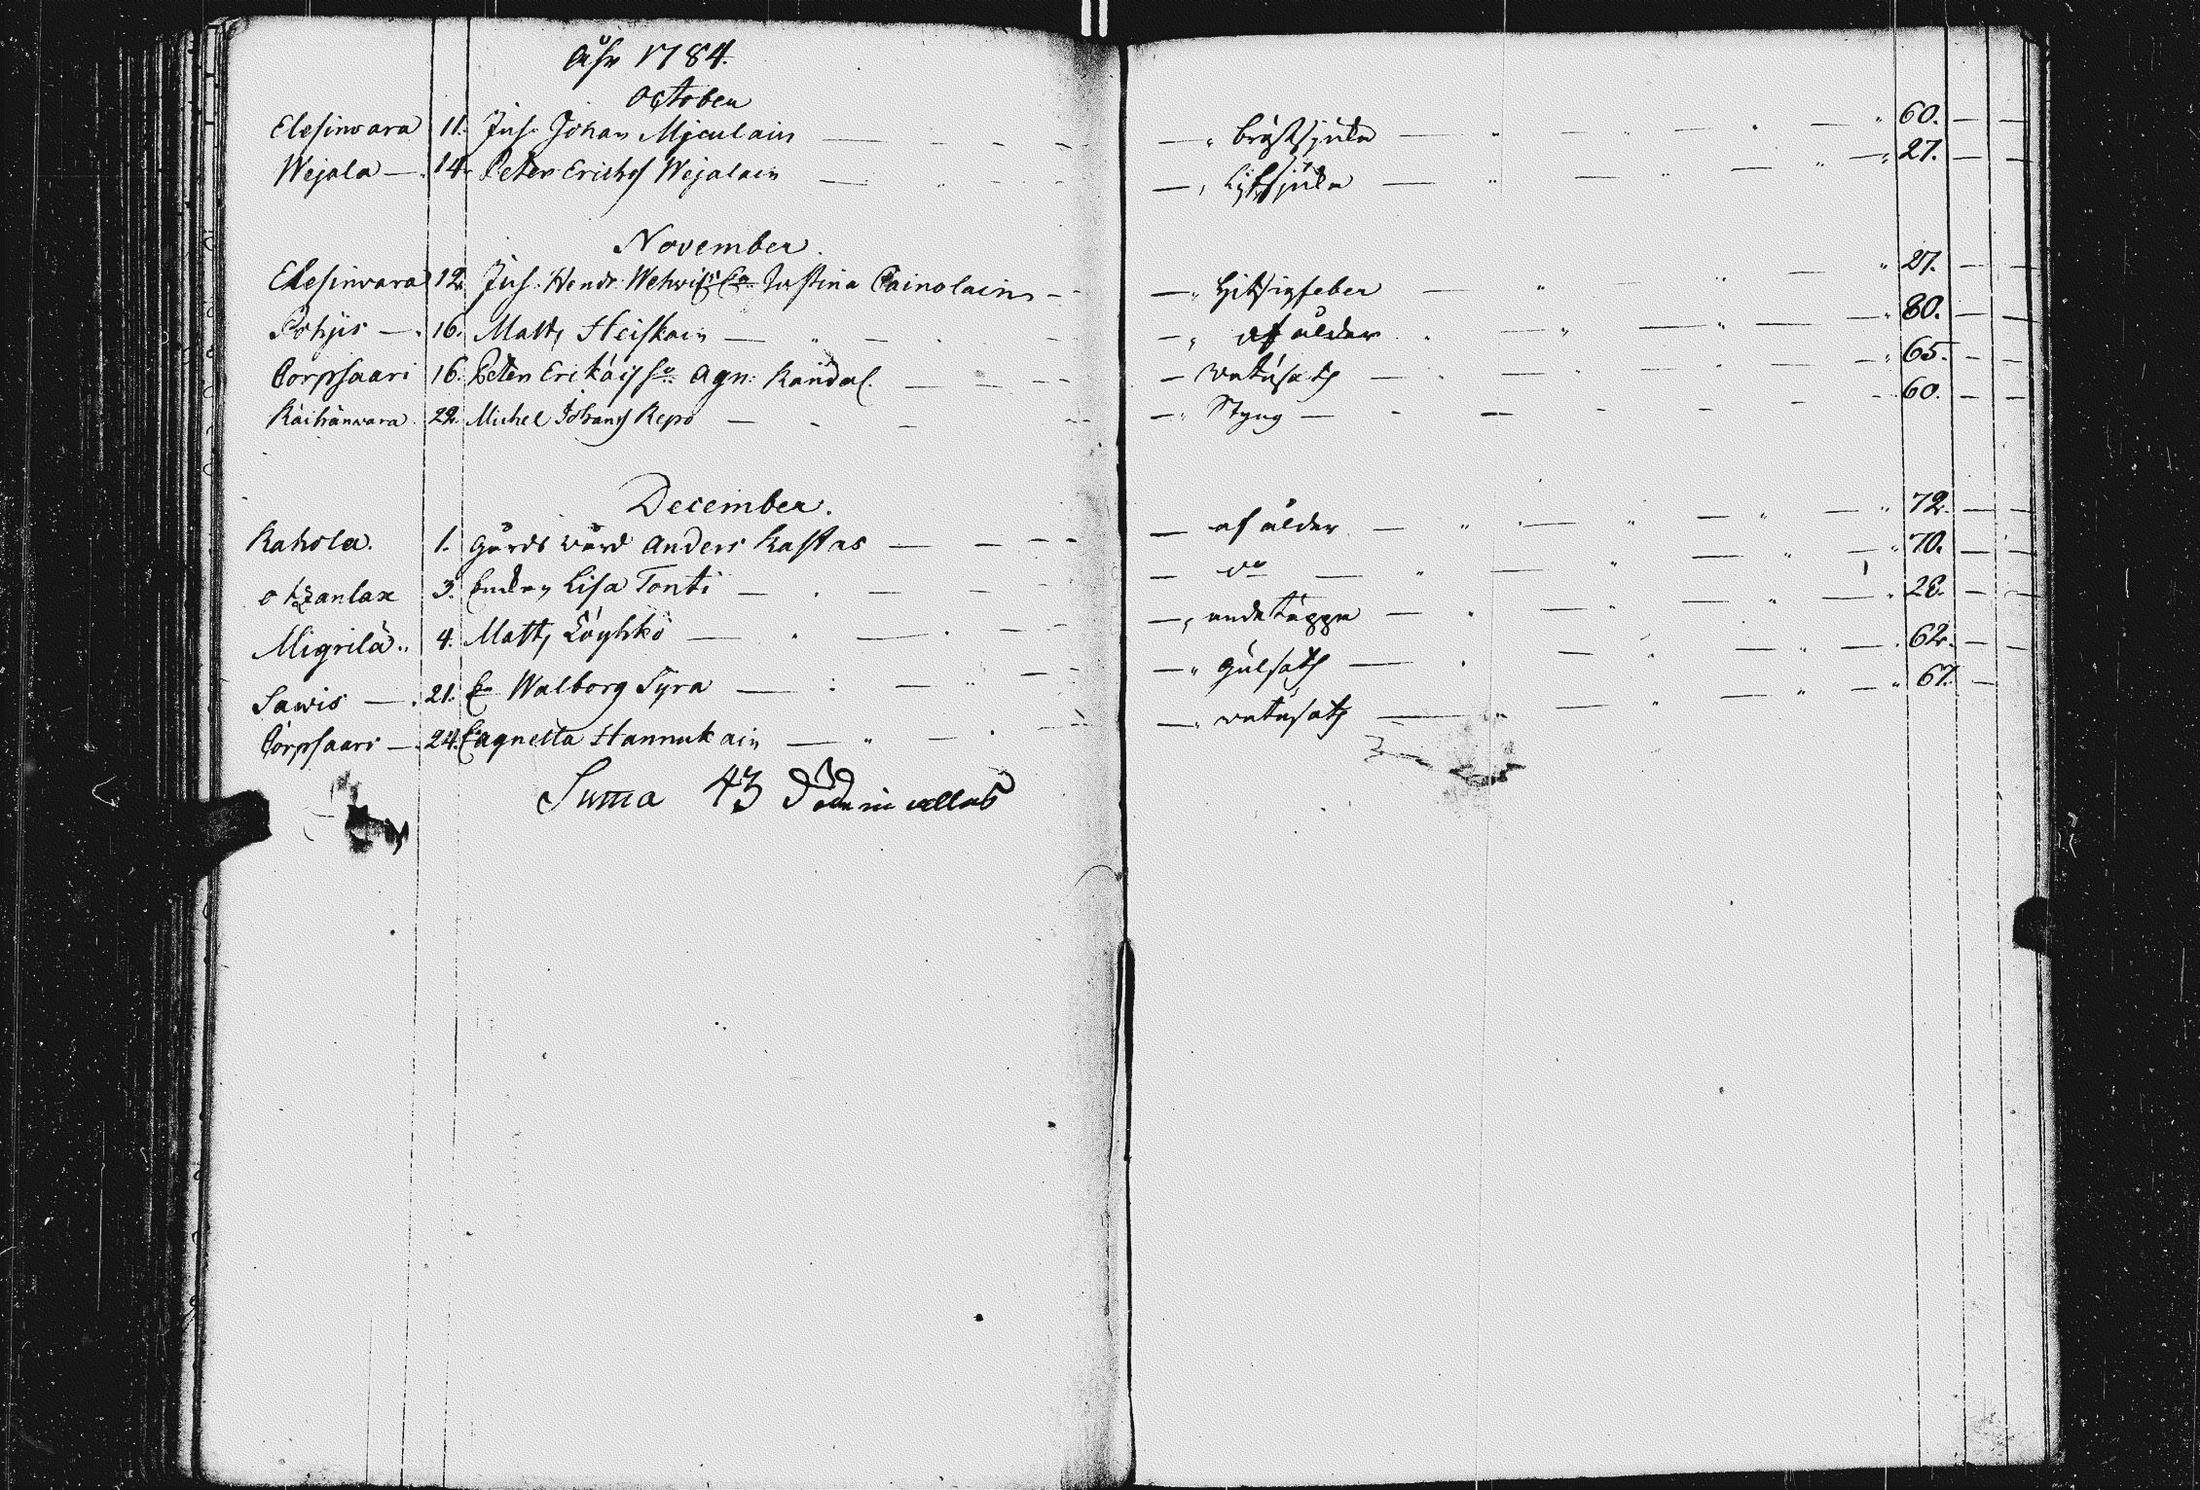 Åhr 1784.
October
Elesinwara 11. Inh. Johan Mjculain — " bröstsjuka — " 60.
Wejala — 14. Peter Erichss Wejalain — " Lijfsjuka — " 27.
November.
Elesinwara 12. Inh. Hendr. Justina Painolain — " Hitsigfeber — " 27.
Pohjis — 16. Matts Heiskain — " af ålder — " 80.
Torpsaari 16. Peter Agn: — watusoth — " 65.
Räihänwara 22. Michel Johanss Repo — " Styng — 60.
December.
Kahola. 1. Gårds wärd Anders Kastas — af ålder — " 72.
3. Enckan Lisa Tonti — do — " 70.
Migrilä " 4. Matts Löyhkö — " andetäppa — " 28.
Sawis — 21. E. Walborg Syra — " Gulsoth — 62.
Torpsaari — 24. E. Agnetta Hannukain — " watusoth — " 67.
Suma 43 Döde in alles